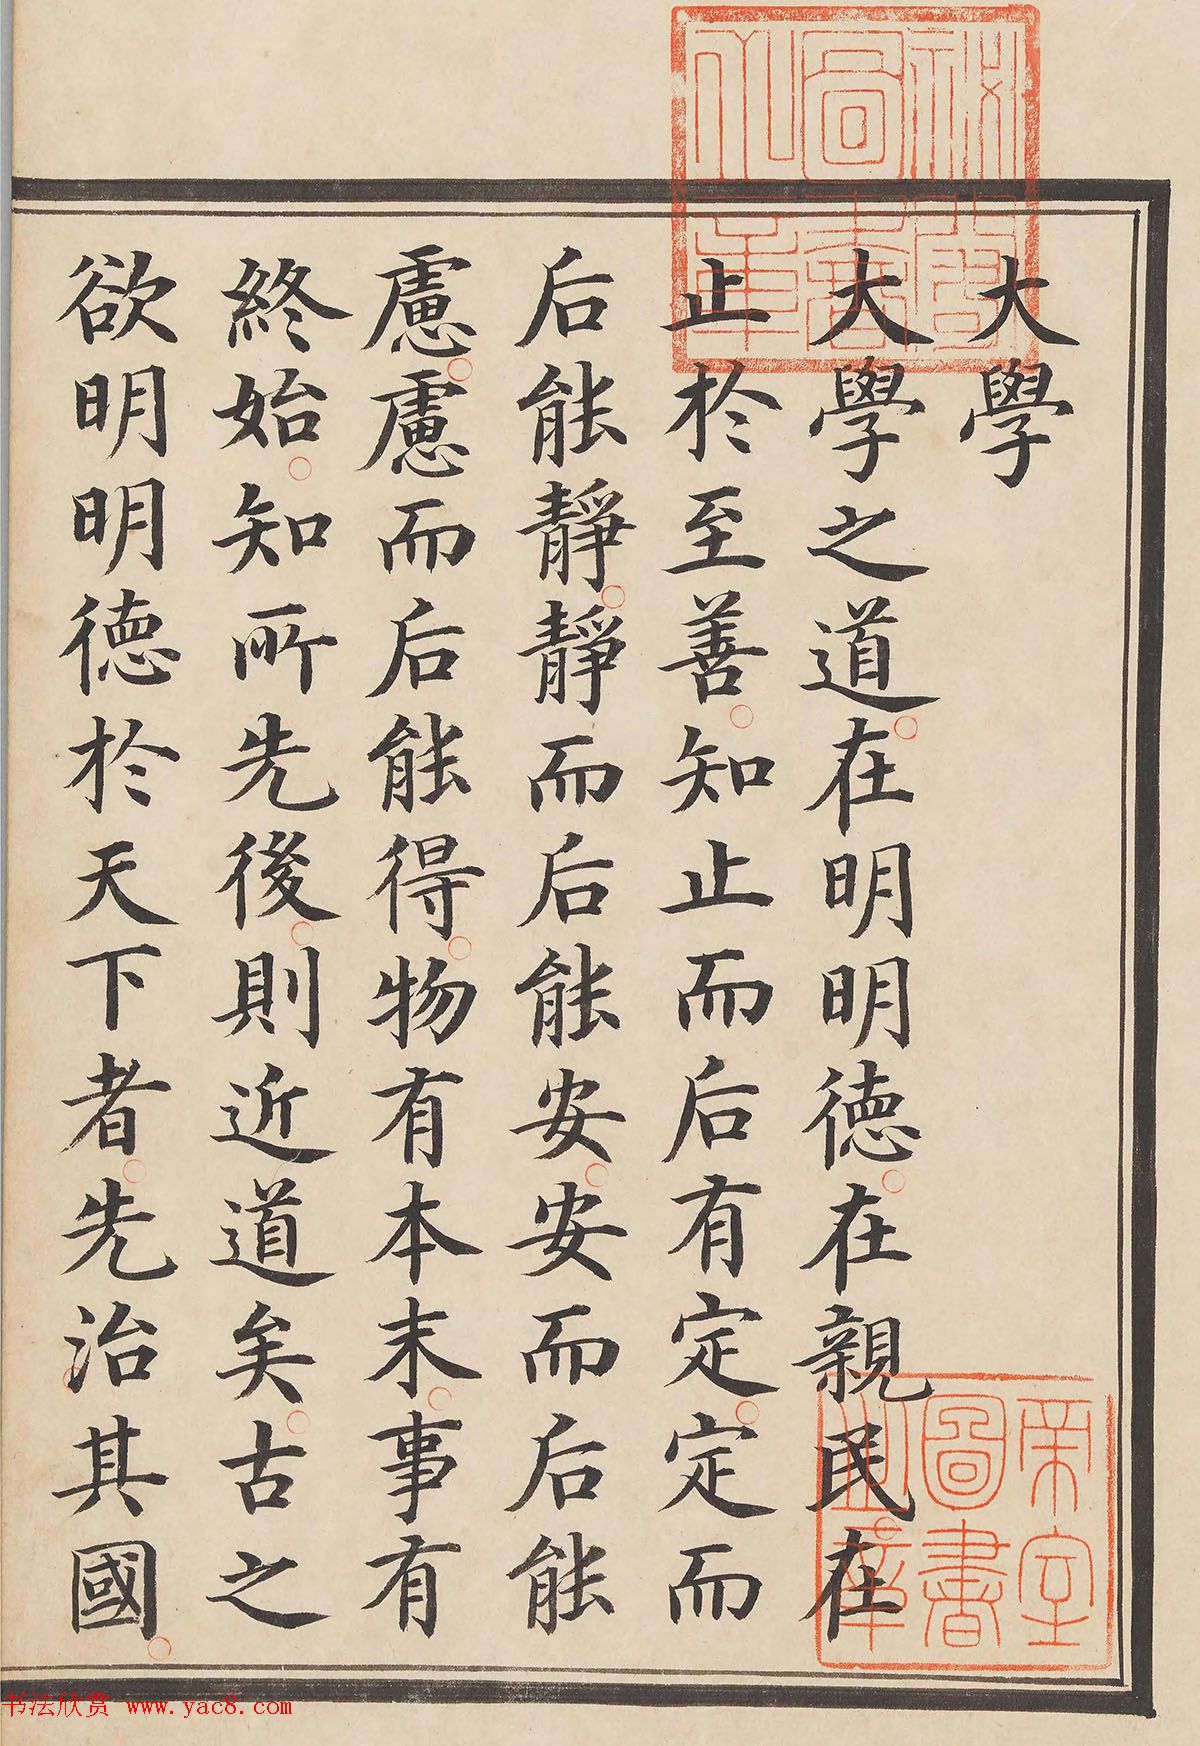 大學
大學之道在明明德在親民在
止於至善知止而后有定定而
后能靜靜而后能安安而后能
慮慮而后能得物有本末事有
終始知所先後則近道矣古之
欲明明德於天下者先治其國
秘殿圖書之章
帝室圖書之章
书法欣赏 www.yac8.com